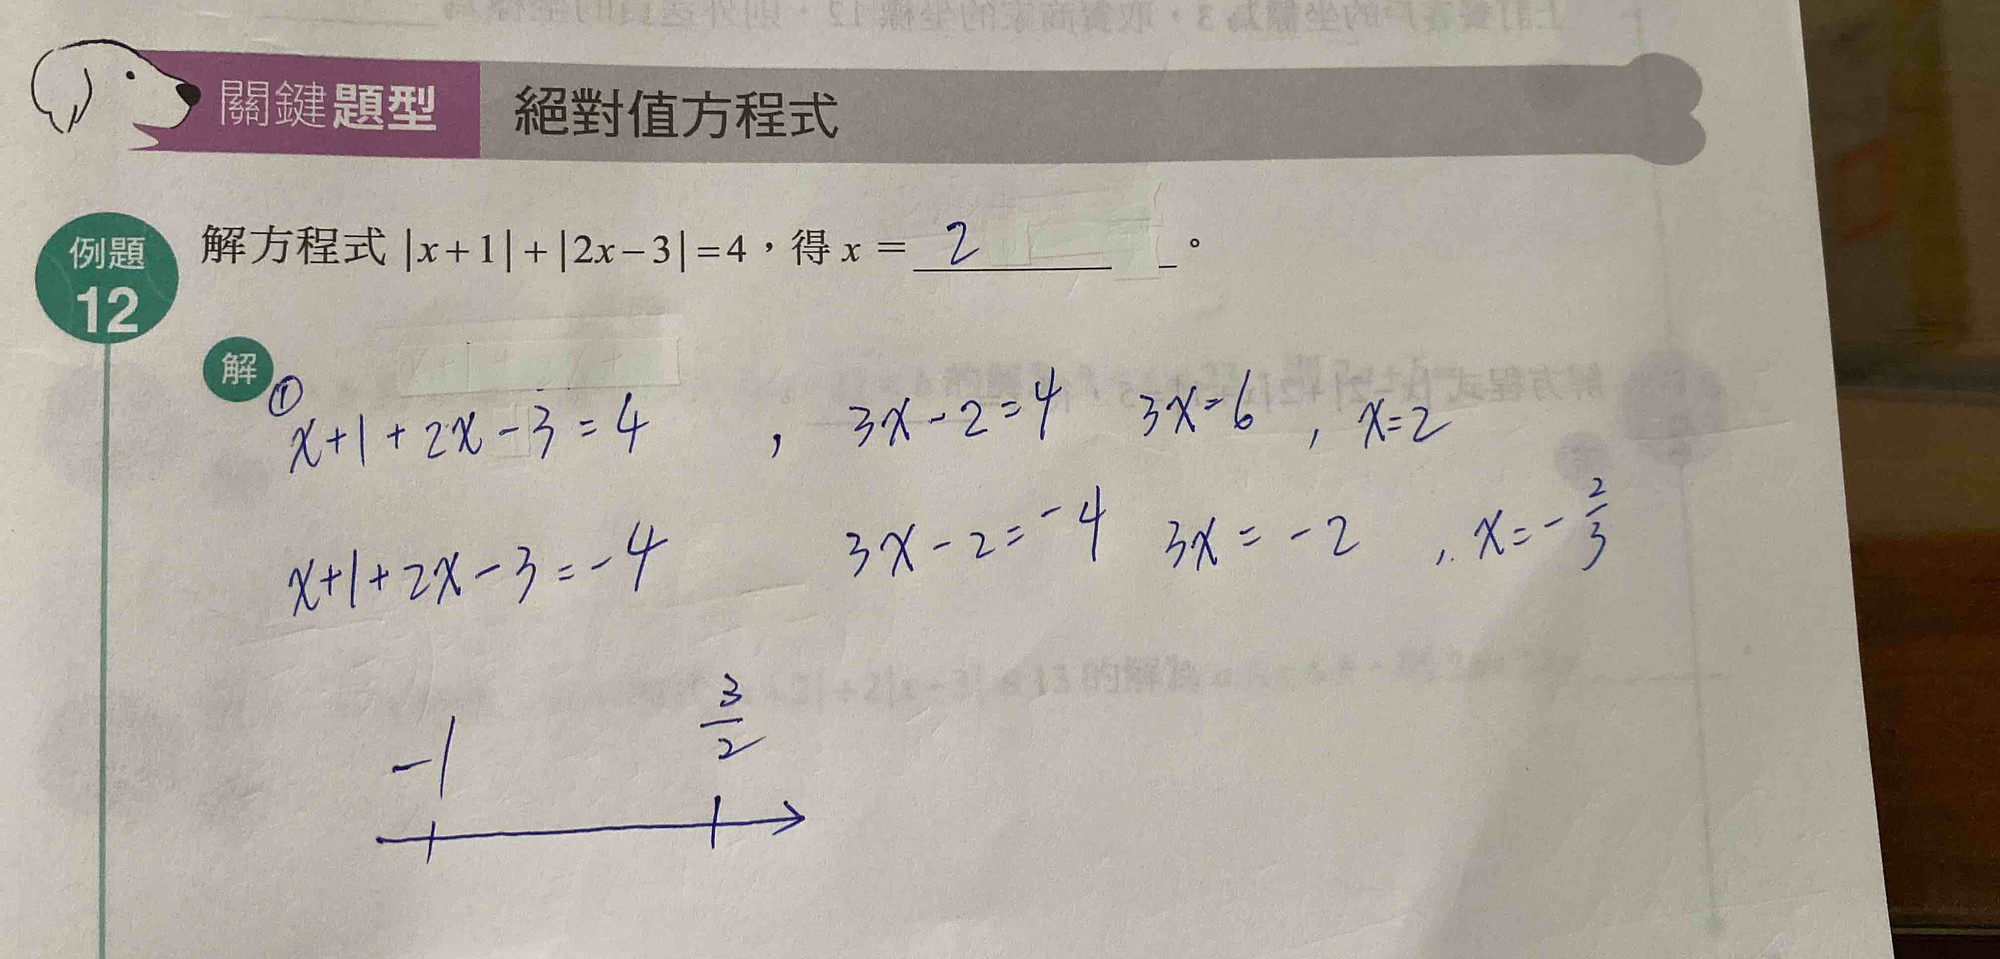 關鍵題型 絕對值方程式
例題 12 解方程式 |x+1|+|2x-3|=4，得 x = 2 。
解
① x+1+2x-3=4 , 3x-2=4 3x=6 , x=2
x+1+2x-3=-4 3x-2=-4 3x=-2 , x=-2/3
-1 3/2